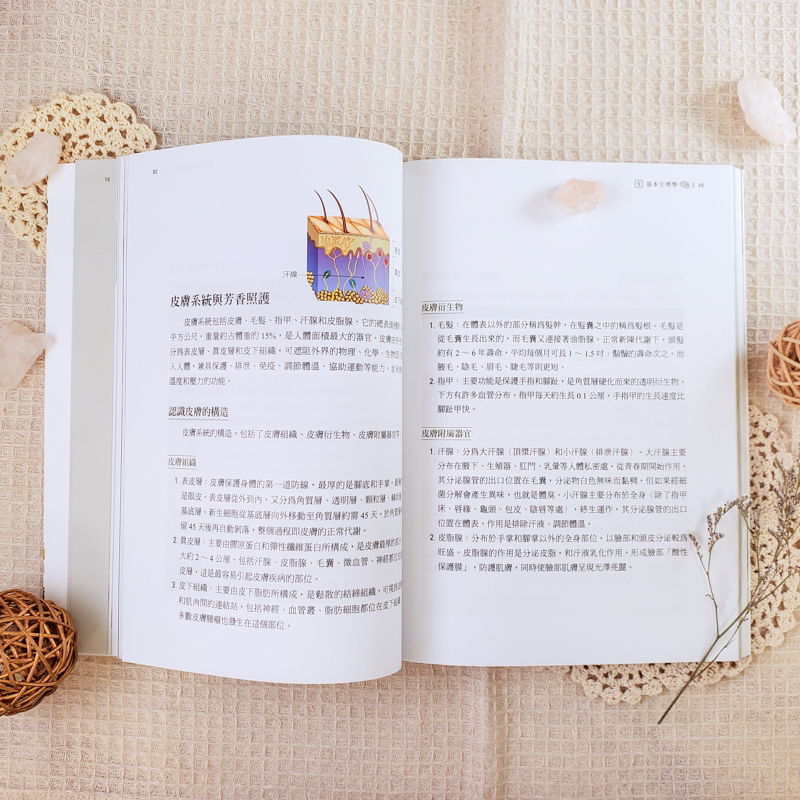 10
92
汗線
皮膚系統與芳香照護
皮膚系統包括皮膚、毛髮、指甲、汗腺和皮脂腺，它的總表面積
平方公尺，重量約占體重的 15%，是人體面積最大的器官，皮膚由外
分為表皮層、真皮層和皮下組織，可遮阻外界的物理、化學、生物
入人體，兼具保護、排泄、免疫、調節體溫、協助運動等能力，
溫度和壓力的功能。
認識皮膚的構造
皮膚系統的構造，包括了皮膚組織、皮膚衍生物、皮膚附屬器官等
皮膚組織
1. 表皮層：皮膚保護身體的第一道防線，最厚的是腳底和手掌，
是眼皮、表皮層從外到內，又分為角質層、透明層、顆粒層、
基底層。新生細胞從基底層向外移動至角質層約需 45 天，於角質
留 45 天後再自動剝落，整個過程即皮膚的正常代謝。
2. 真皮層：主要由膠原蛋白和彈性纖維蛋白所構成，是皮膚最厚的
大約 2～4 公厘，包括汗腺、皮脂腺、毛囊、微血管、神經都位
皮層，這是最容易引起皮膚疾病的部位。
3. 皮下組織：主要由皮下脂肪所構成，是鬆散的結締組織，可視為
和肌肉間的連結站，包括神經、血管叢、脂肪細胞都位在皮下組織
多數皮膚腫瘤也發生在這個部位。
5 基本生理學 93
皮膚衍生物
1. 毛髮：在體表以外的部分稱為髮幹，在髮囊之中的稱為髮根。毛髮是
從毛囊生長出來的，而毛囊又連接著油脂腺。正常新陳代謝下，頭髮
約有 2～6 年壽命，平均每個月可長 1～1.5 吋；鬍鬚的壽命次之，而
腋毛、陰毛、眉毛、睫毛等則更短。
2. 指甲：主要功能是保護手指和腳趾，是角質層硬化而來的透明衍生物，
下方有許多血管分布。指甲每天約生長 0.1 公厘，手指甲的生長速度比
腳趾甲快。
皮膚附屬器官
1. 汗腺：分為大汗腺（頂漿汗腺）和小汗腺（排泄汗腺）。大汗腺主要
分布在腋下、生殖器、肛門、乳暈等人體私密處，從青春期開始作用，
其分泌腺管的出口位置在毛囊，分泌物白色無味而黏稠，但如果經細
菌分解會產生異味，也就是體臭。小汗腺主要分布於全身（除了指甲
床、唇緣、龜頭、包皮、陰唇等處），終生運作，其分泌腺管的出口
位置在體表，作用是排除汗液、調節體溫。
2. 皮脂腺：分布於手掌和腳掌以外的全身部位，以臉部和頭皮分泌較為
旺盛。皮脂腺的作用是分泌皮脂，和汗液乳化作用，形成臉部「酸性
保護膜」，防護肌膚，同時使臉部肌膚呈現光澤亮麗。